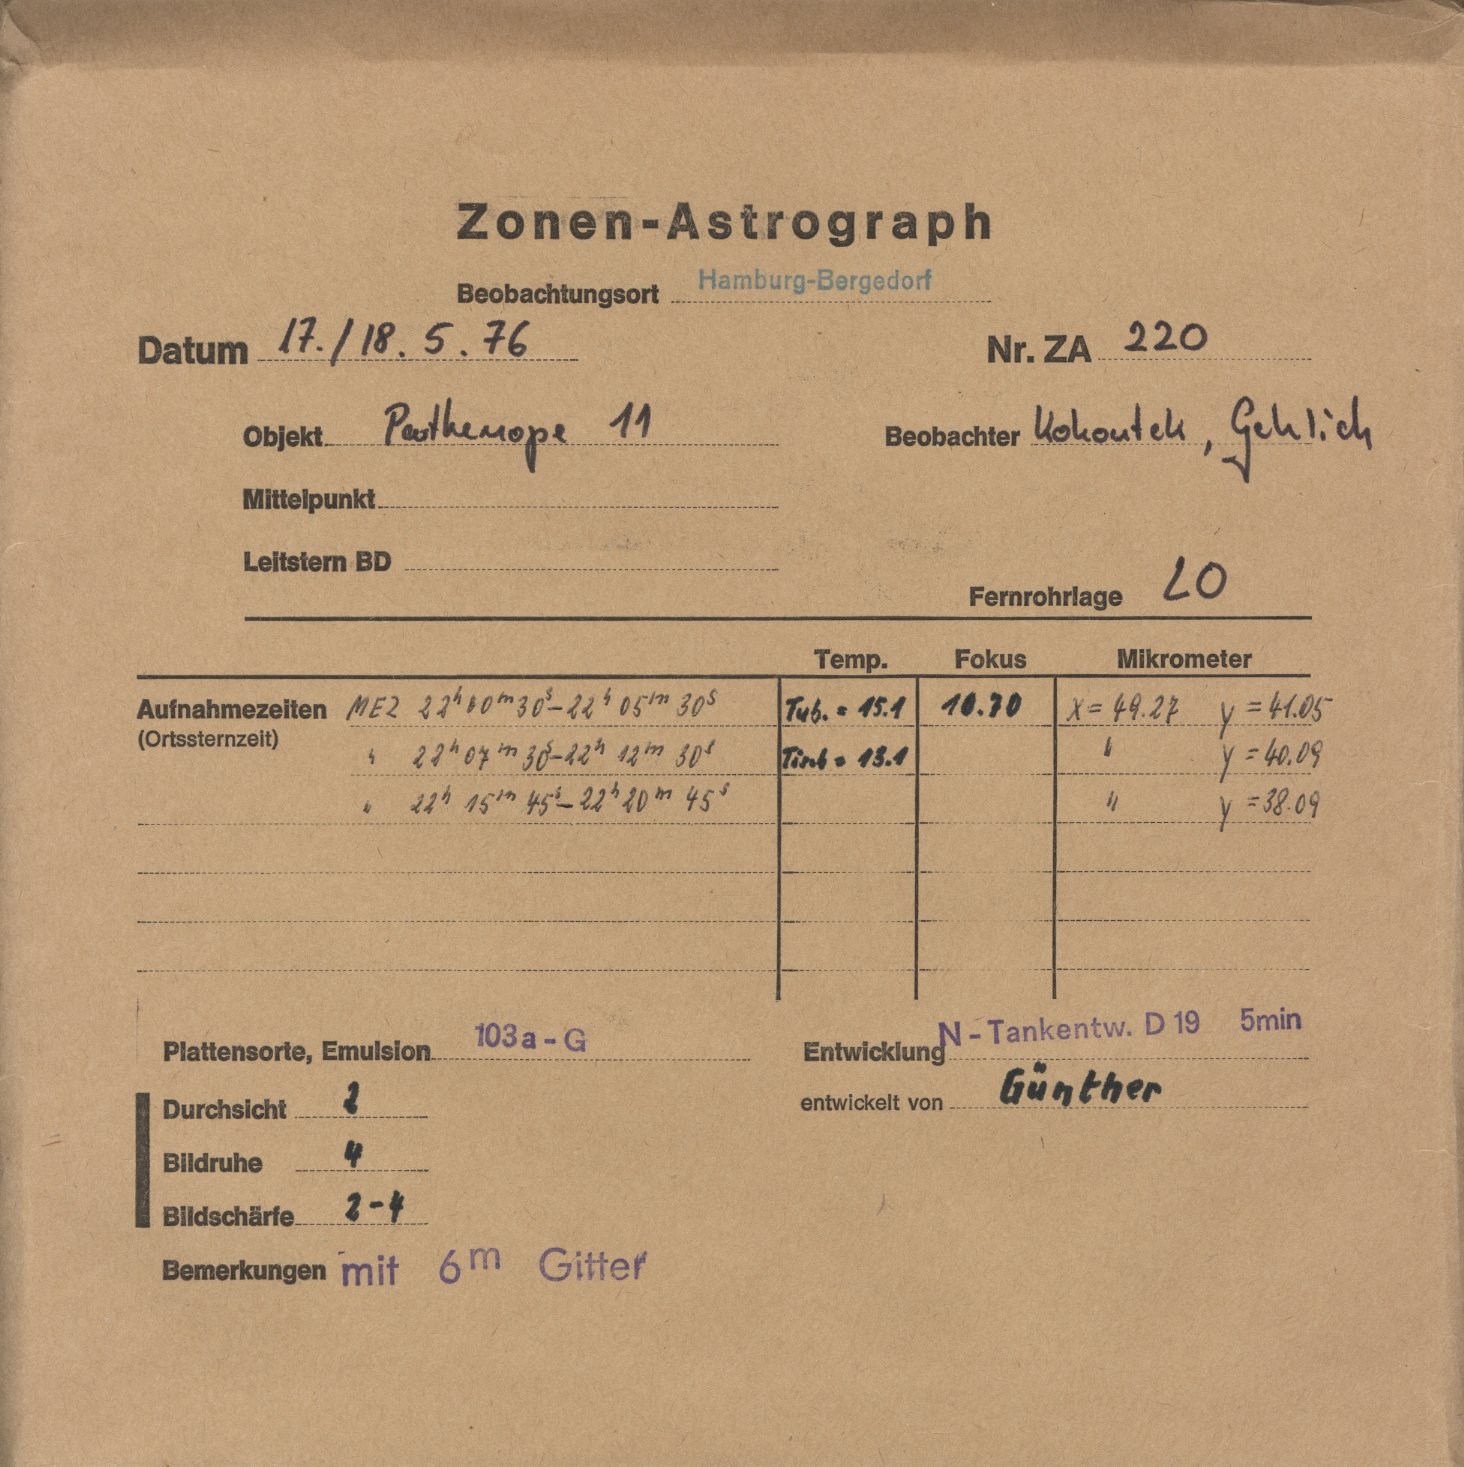 Zonen-Astrograph
Beobachtungsort Hamburg-Bergedorf
Datum 17./18.5.76 Nr. ZA 220
Objekt Parthenope 11 Beobachter Kohoutek, Gehlich
Mittelpunkt
Leitstern BD
Fernrohrlage LO
Temp. Fokus Mikrometer
Aufnahmezeiten MEZ 22h 00m 30s–22h 05m 30s Tub. = 15.1 10.70 x = 49.27 y = 41.05
(Ortssternzeit)
" 22h 07m 30s–22h 12m 30s = 13.1 " y = 40.09
" 22h 15m 45s–22h 20m 45s " y = 38.09
Plattensorte, Emulsion 103a-G Entwicklung N-Tankentw. D 19 5min
Durchsicht 2 entwickelt von Günther
Bildruhe 4
Bildschärfe 2-4
Bemerkungen mit 6m Gitter